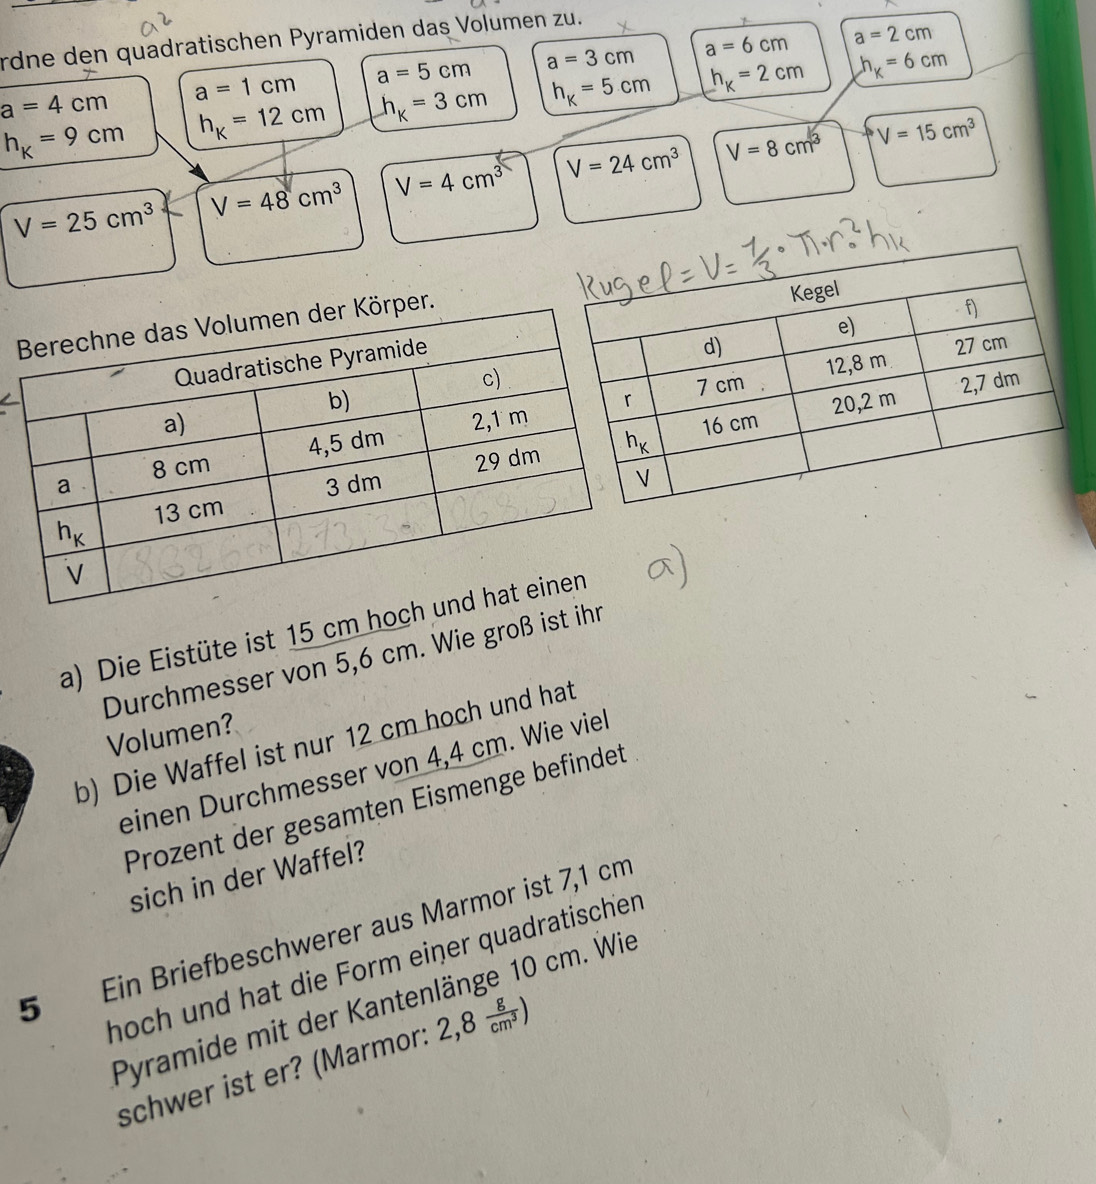 a²
rdne den quadratischen Pyramiden das Volumen zu.
a = 4 cm
h_K = 9 cm
a = 1 cm
h_K = 12 cm
a = 5 cm
h_K = 3 cm
a = 3 cm
h_K = 5 cm
a = 6 cm
h_K = 2 cm
a = 2 cm
h_K = 6 cm
V = 25 cm³
V = 48 cm³
V = 4 cm³
V = 24 cm³
V = 8 cm³
V = 15 cm³
Kugel = V = 1/3 · π · r² · h_K
Berechne das Volumen der Körper.
Quadratische Pyramide
a) b) c)
a 8 cm 4,5 dm 2,1 m
h_K 13 cm 3 dm 29 dm
V
Kegel
d) e) f)
r 7 cm 12,8 m 27 cm
h_K 16 cm 20,2 m 2,7 dm
V
a) Die Eistüte ist 15 cm hoch und hat einen
Durchmesser von 5,6 cm. Wie groß ist ihr
Volumen?
a)
b) Die Waffel ist nur 12 cm hoch und hat
einen Durchmesser von 4,4 cm. Wie viel
Prozent der gesamten Eismenge befindet
sich in der Waffel?
5 Ein Briefbeschwerer aus Marmor ist 7,1 cm
hoch und hat die Form einer quadratischen
Pyramide mit der Kantenlänge 10 cm. Wie
schwer ist er? (Marmor: 2,8 g/cm³)